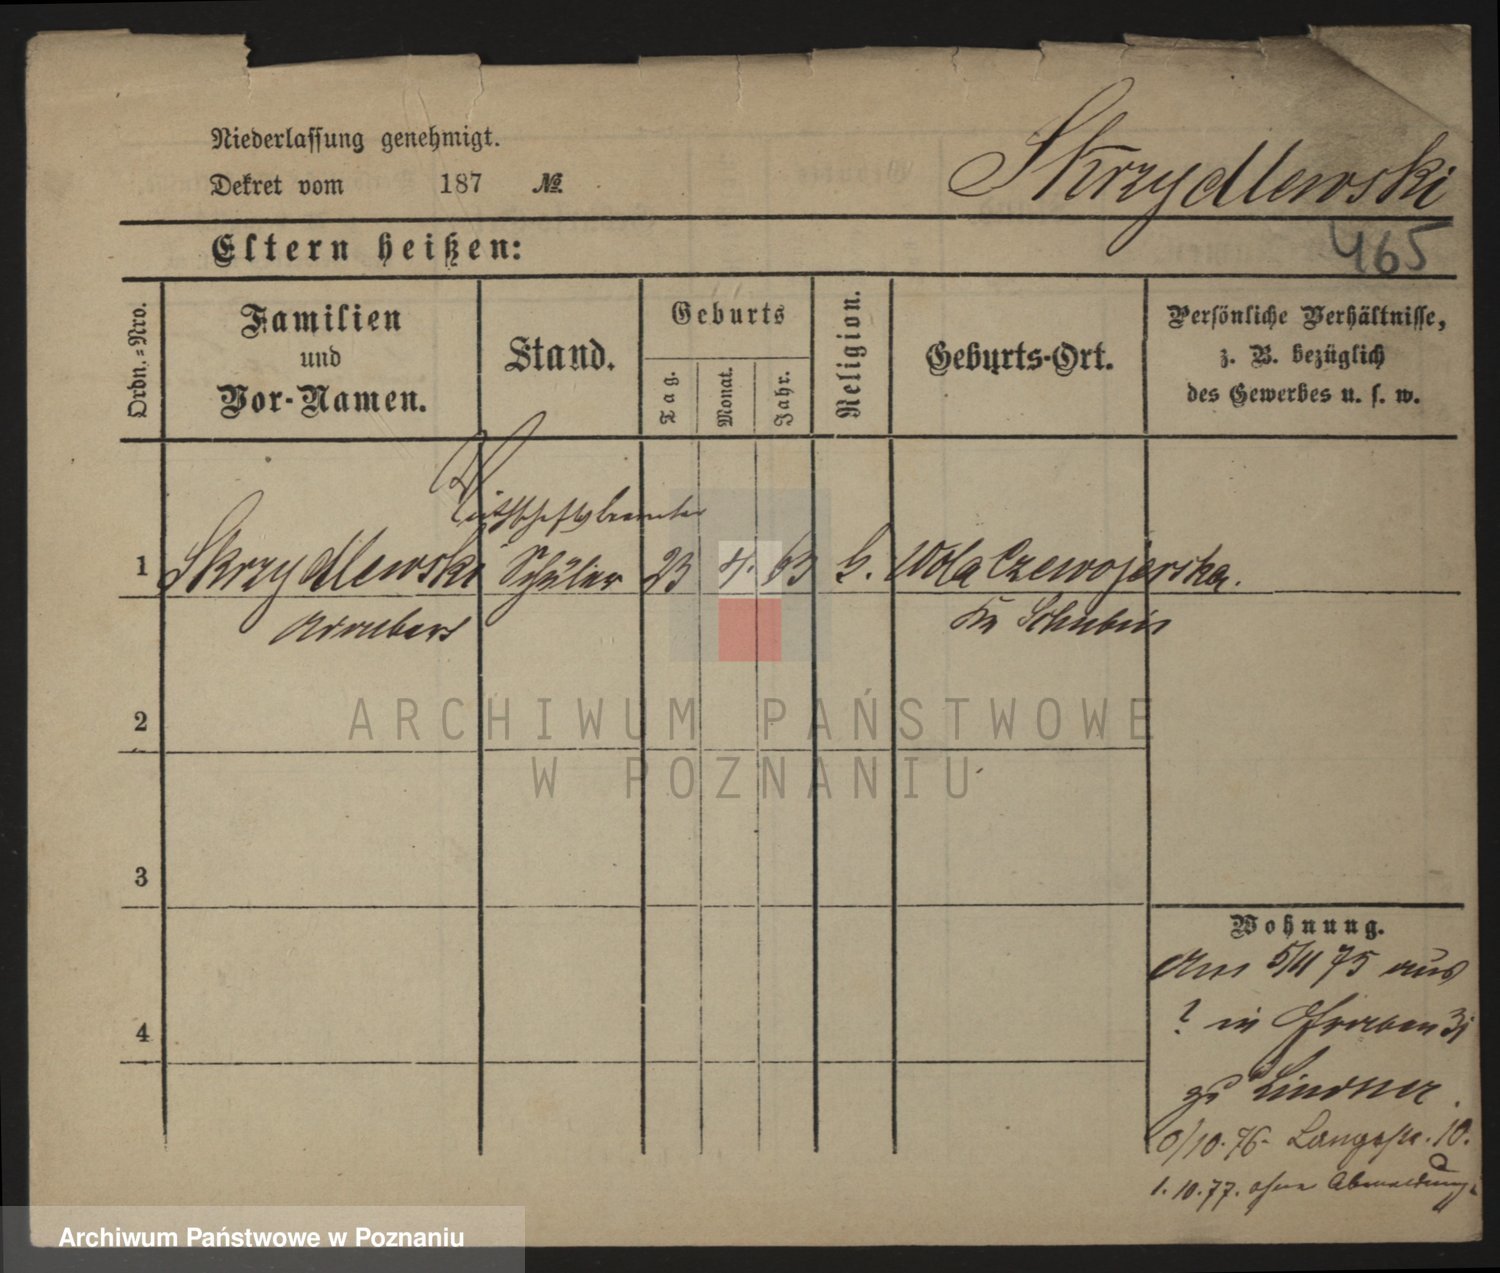 Niederlassung genehmigt.
Dekret vom 187 №
Skrzydlewski
465
Eltern heißen:
Ordn.=Nro.
Familien
und
Vor-Namen.
Stand.
Geburts
Tag.
Monat.
Jahr.
Religion.
Geburts-Ort.
Persönliche Verhältnisse,
z. B. bezüglich
des Gewerbes u. s. w.
Wirthschaftsbeamter
1 Skrzydlewski Schüler 23 4. 63 Wola Czewojewska.
Kr Schubin
2
3
4
Wohnung.
Am 5/11 75 aus
? in Graben 31
zu Lindner.
10. 76. Langestr. 10.
1. 10. 77. ohne Abmeldung.
ARCHIWUM PAŃSTWOWE
W POZNANIU
Archiwum Państwowe w Poznaniu